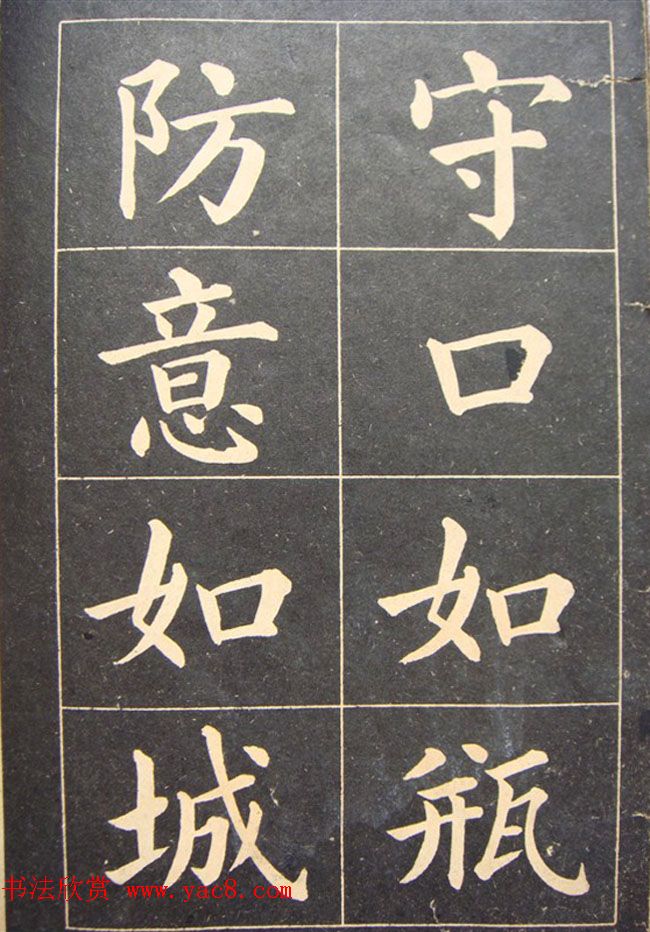 守口如瓶
防意如城
书法欣赏 www.yac8.com